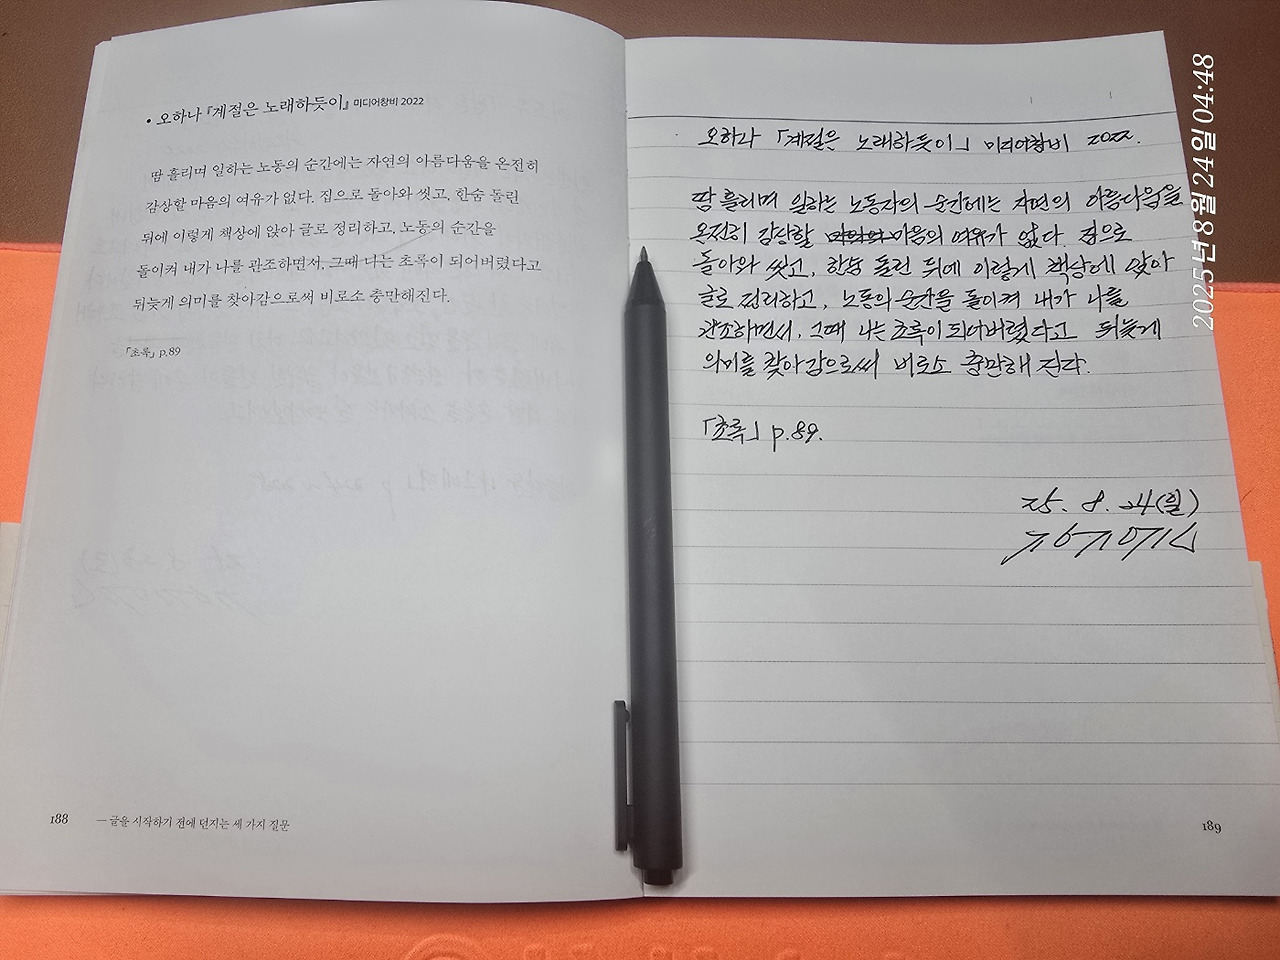 • 오하나 『계절은 노래하듯이』 미디어창비 2022
땀 흘리며 일하는 노동의 순간에는 자연의 아름다움을 온전히
감상할 마음의 여유가 없다. 집으로 돌아와 씻고, 한숨 돌린
뒤에 이렇게 책상에 앉아 글로 정리하고, 노동의 순간을
돌이켜 내가 나를 관조하면서, 그때 나는 초록이 되어버렸다고
뒤늦게 의미를 찾아감으로써 비로소 충만해진다.
「초록」 p.89
188
— 글을 시작하기 전에 던지는 세 가지 질문
· 오하나 「계절은 노래하듯이」 미디어창비 2022.
땀 흘리며 일하는 노동자의 순간에는 자연의 아름다움을
온전히 감상할 마음의 여유가 없다. 집으로
돌아와 씻고, 한숨 돌린 뒤에 이렇게 책상에 앉아
글로 정리하고, 노동의 순간을 돌이켜 내가 나를
관조하면서, 그때 나는 초록이 되어버렸다고 뒤늦게
의미를 찾아감으로써 비로소 충만해진다.
「초록」 p.89.
25. 8. 24(일)
189
2025년 8월 24일 04:48